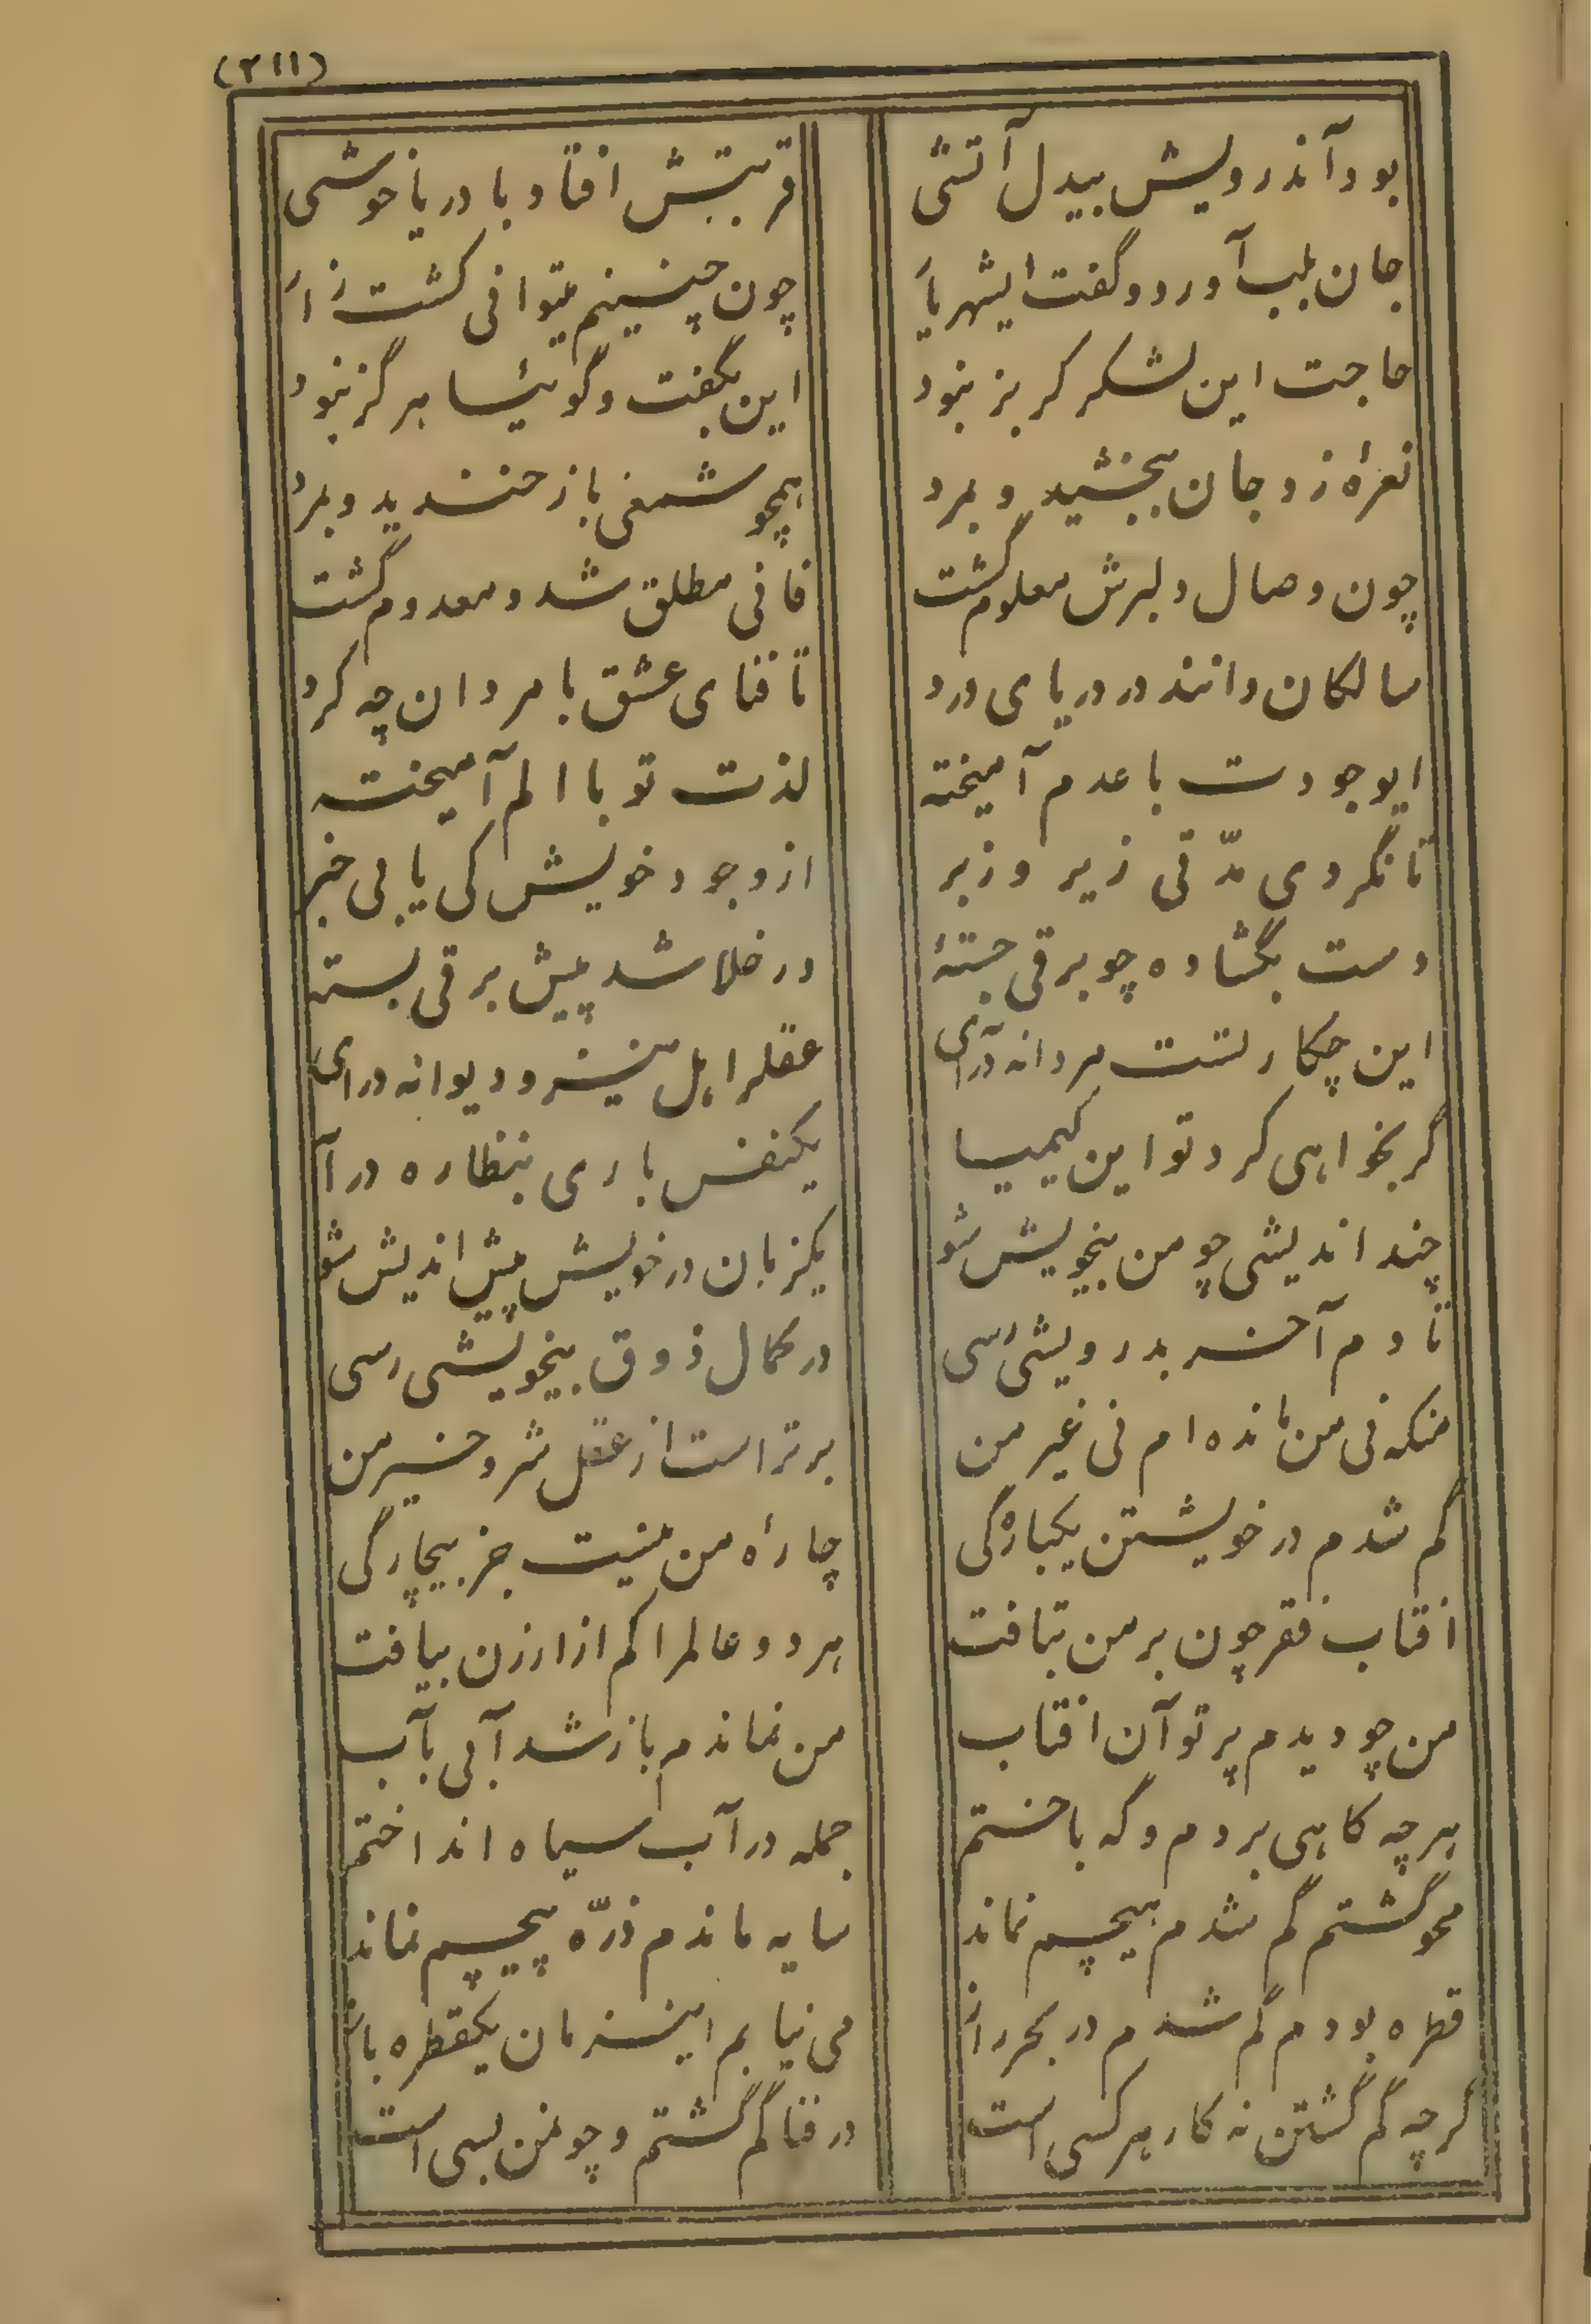 (۲۱۱)
بود آندرویش بیدل آتشی قربتش افتاد با دریا خوشی
جان بلب آورد و گفت ایشهریار چون چنینم میتوانی کشت زار
حاجت این لشکر گر بز نبود این بگفت و گوئیا هرگز نبود
نعرهٔ زد جان ببخشید و بمرد همچو شمعی باز خندید و بمرد
چون وصال دلبرش معلوم گشت فانی مطلق شد و معدوم گشت
سالکان دانند در دریای درد تا فنای عشق با مردان چه کرد
ایوجودت با عدم آمیخته لذت تو با الم آمیخته
تا نگردی مدّتی زیر و زبر از وجود خویش کی یابی خبر
دست بگشاده چو برقی جستهٔ در خلا شد پیش برقی بستهٔ
این چکارتست مردانه درآی عقل را هل نیز و دیوانه درای
گر نخواهی کرد تو این کیمیا یکنفس باری بنظاره درآ
چند اندیشی چو من بیخویش شو یکزمان در خویش پیش اندیش شو
تا دم آخر بدرویشی رسی در کمال ذوق بیخویشی رسی
منکه نی من مانده ام نی غیر من برتر است از عقل شر و خیر من
گم شدم در خویشتن یکبارگی چارهٔ من نیست جز بیچارگی
افتاب فقر چون بر من بتافت هر دو عالمرا کم از ارزن بیافت
من چو دیدم پرتو آن افتاب من نماندم باز شد آبی بآب
هر چه کاهی بردم و گه باختم جمله در آب سیاه انداختم
محو گشتم گم شدم هیچم نماند سایه ماندم ذرّه پیچم نماند
قطره بودم گم شدم در بحر راز می نیابم اینزمان یکقطره باز
گرچه گم گشتن نه کار هر کسی است در فنا گم گشتم و چو من بسی است